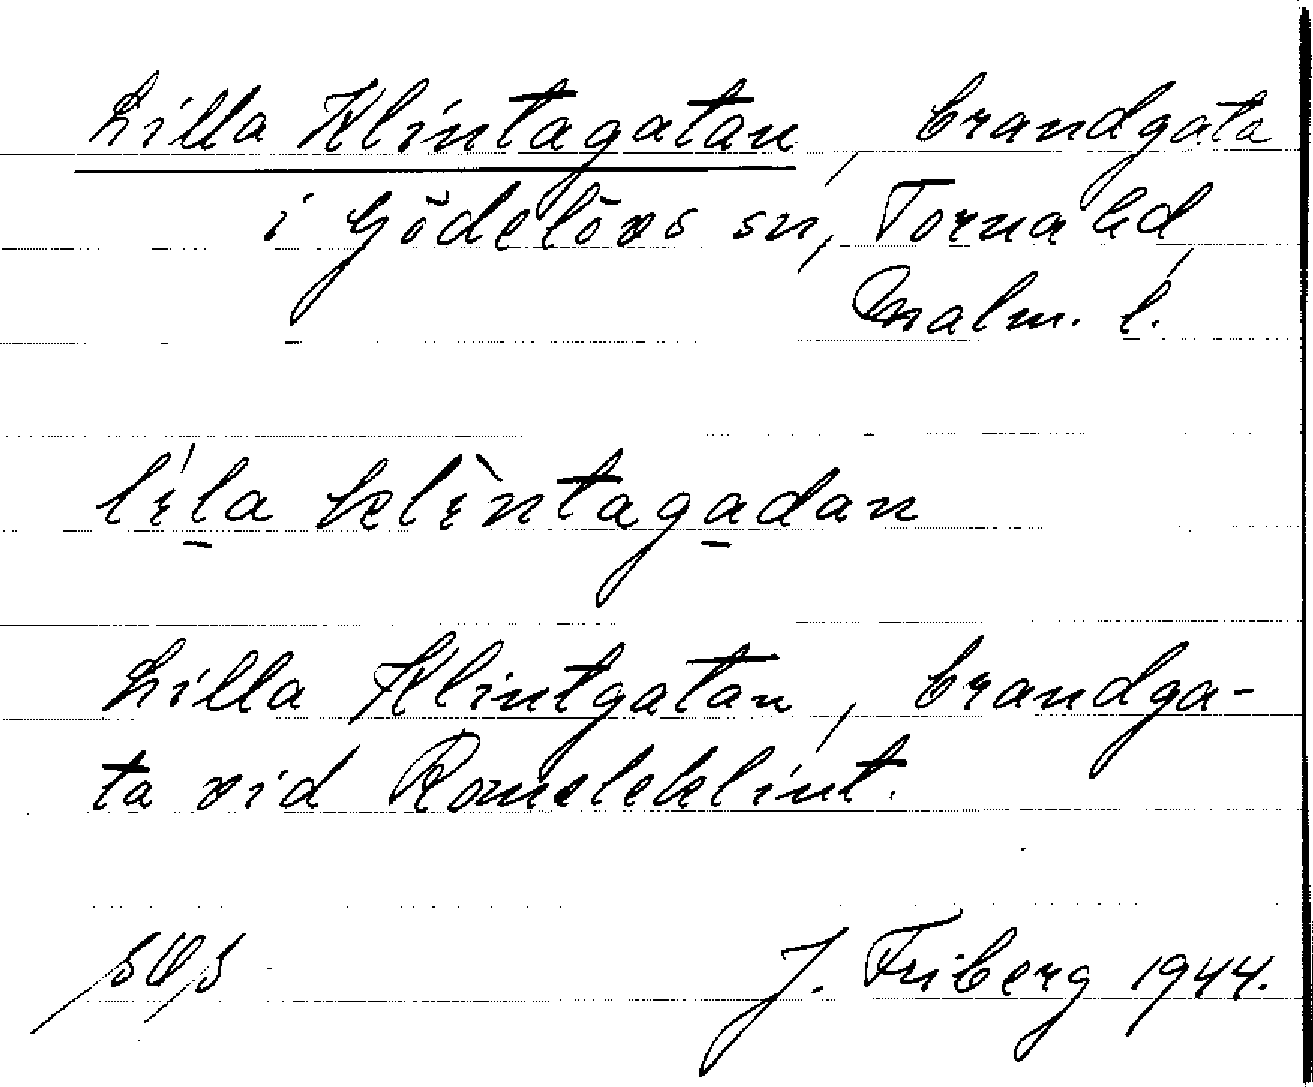 Lilla Klintagatan, brandgata
i Gödelövs sn, Torna hd,
Malm. l.
líla klìntagadan
Lilla Klintgatan, brandga-
ta vid Romeleklint.
J. Friberg 1944.